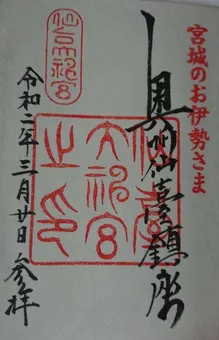 宮城のお伊勢さま
奥州仙臺鎮座
仙台大神宮
仙臺大神宮之印
令和二年三月廿日参拝